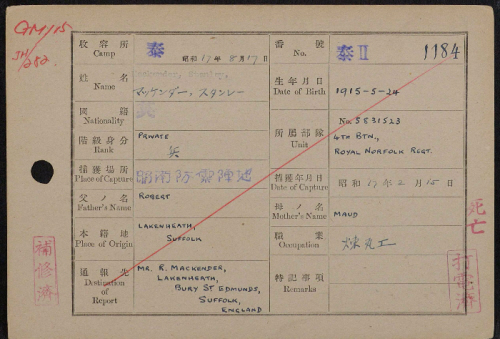 GM/15
JM/252
収容所 Camp 泰 昭和17年8月17日
番號 No. 泰II 1184
姓名 Name マッケンダー, スタンレー
生年月日 Date of Birth 1915-5-24
國籍 Nationality 英
階級身分 Rank PRIVATE 兵
所屬部隊 Unit No. 5831523
4TH BTN.,
ROYAL NORFOLK REGT.
捕獲場所 Place of Capture
捕獲年月日 Date of Capture 昭和17年2月15日
父ノ名 Father's Name ROBERT
母ノ名 Mother's Name MAUD
本籍地 Place of Origin LAKENHEATH,
SUFFOLK
職業 Occupation 煉瓦工
通報先 Destination of Report MR. R. MACKENDER,
LAKENHEATH,
BURY ST EDMUNDS,
SUFFOLK,
ENGLAND
特記事項 Remarks
死亡
補修済